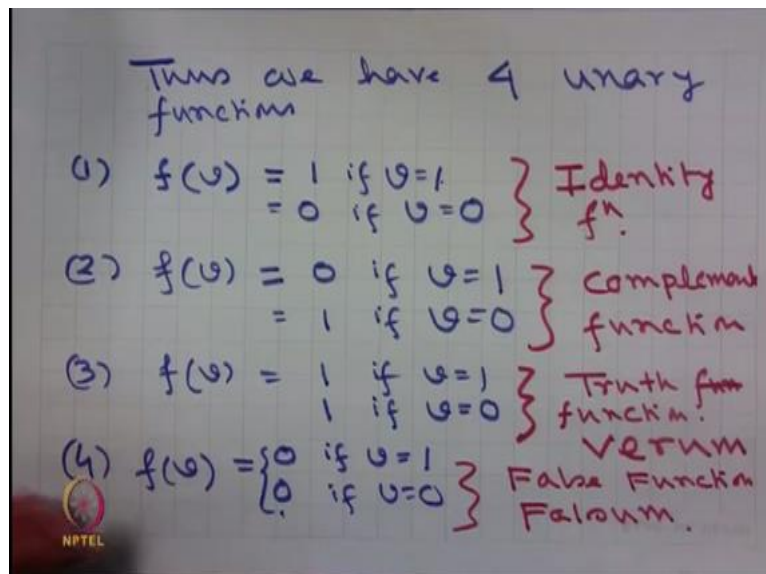 Thus we have 4 unary
functions
(1) f(v) = 1 if v=1
= 0 if v=0
Identity
fⁿ.
(2) f(v) = 0 if v=1
= 1 if v=0
Complement
function
(3) f(v) = 1 if v=1
1 if v=0
Truth
function.
Verum
(4) f(v) = {0 if v=1
0 if v=0
False Function
Falsum.
NPTEL